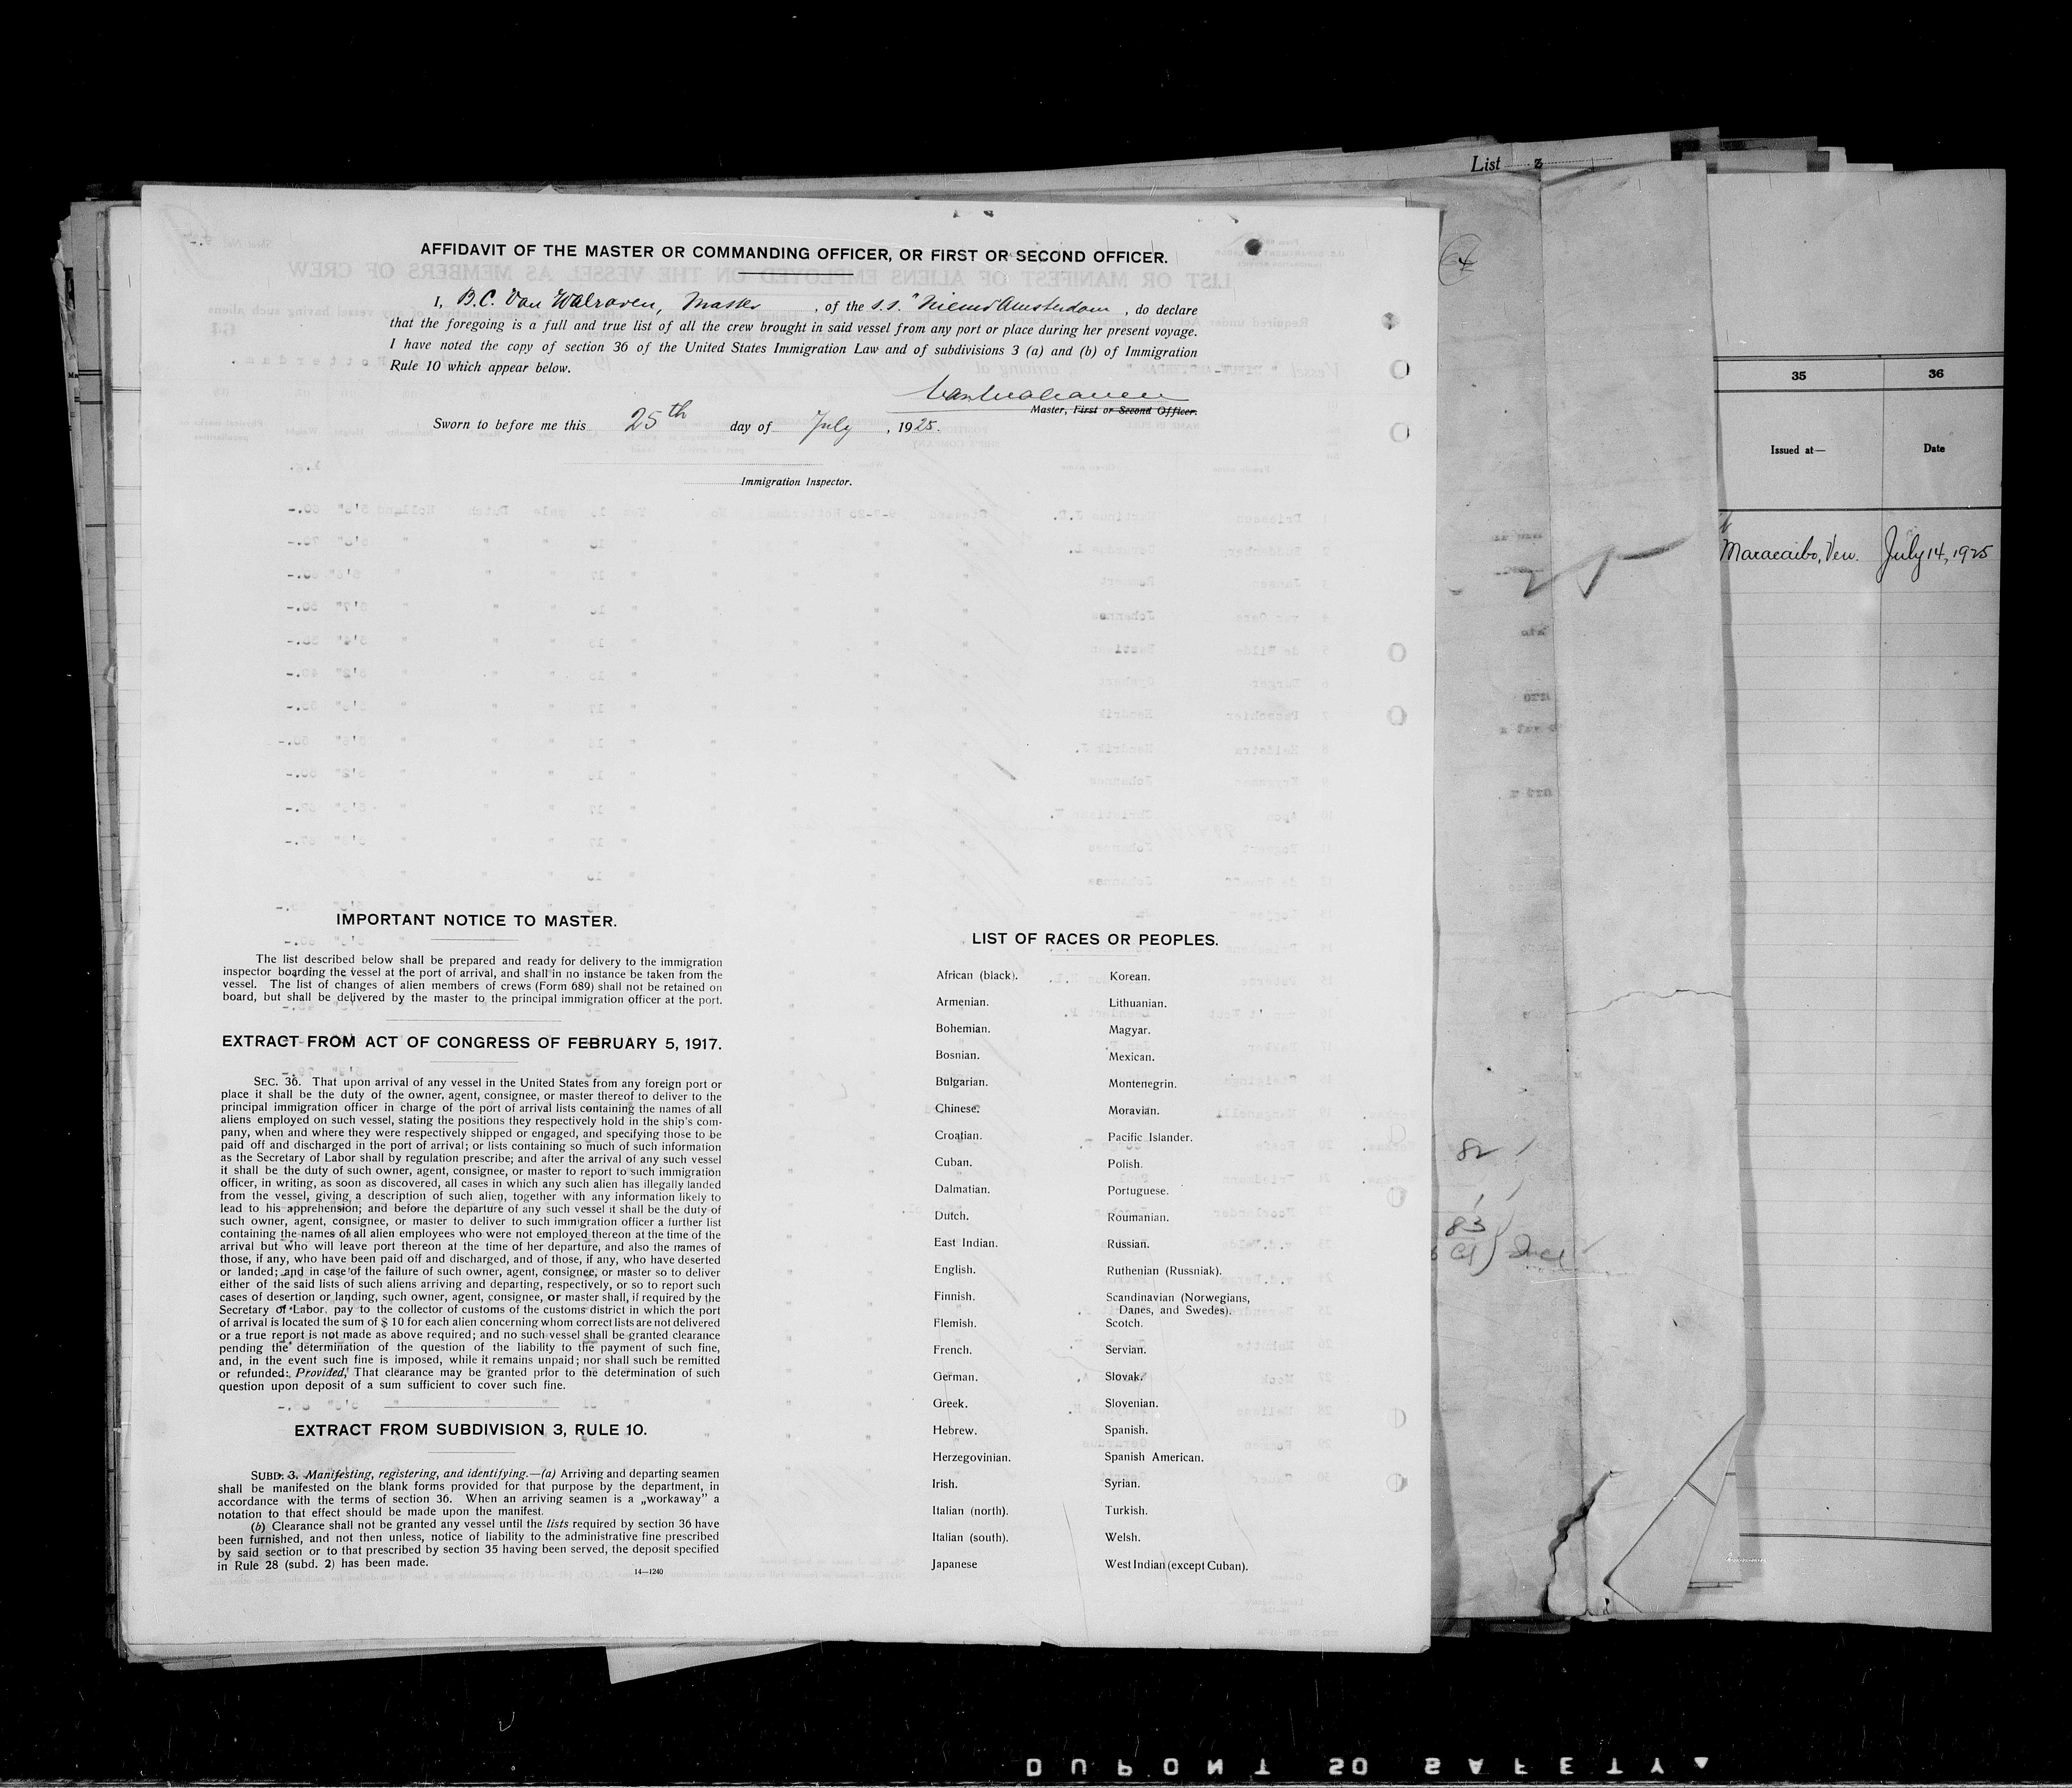 List 3
AFFIDAVIT OF THE MASTER OR COMMANDING OFFICER, OR FIRST OR SECOND OFFICER.
I, B.C. Van Walraven, Master, of the s.s. "Nieuw Amsterdam, do declare
that the foregoing is a full and true list of all the crew brought in said vessel from any port or place during her present voyage.
I have noted the copy of section 36 of the United States Immigration Law and of subdivisions 3 (a) and (b) of Immigration
Rule 10 which appear below.
VanWalraven
Master, First or Second Officer.
Sworn to before me this 25th day of July, 1925.
Immigration Inspector.
IMPORTANT NOTICE TO MASTER.
The list described below shall be prepared and ready for delivery to the immigration
inspector boarding the vessel at the port of arrival, and shall in no instance be taken from the
vessel. The list of changes of alien members of crews (Form 689) shall not be retained on
board, but shall be delivered by the master to the principal immigration officer at the port.
EXTRACT FROM ACT OF CONGRESS OF FEBRUARY 5, 1917.
SEC. 36. That upon arrival of any vessel in the United States from any foreign port or
place it shall be the duty of the owner, agent, consignee, or master thereof to deliver to the
principal immigration officer in charge of the port of arrival lists containing the names of all
aliens employed on such vessel, stating the positions they respectively hold in the ship's com-
pany, when and where they were respectively shipped or engaged, and specifying those to be
paid off and discharged in the port of arrival; or lists containing so much of such information
as the Secretary of Labor shall by regulation prescribe; and after the arrival of any such vessel
it shall be the duty of such owner, agent, consignee, or master to report to such immigration
officer, in writing, as soon as discovered, all cases in which any such alien has illegally landed
from the vessel, giving a description of such alien, together with any information likely to
lead to his apprehension; and before the departure of any such vessel it shall be the duty of
such owner, agent, consignee, or master to deliver to such immigration officer a further list
containing the names of all alien employees who were not employed thereon at the time of the
arrival but who will leave port thereon at the time of her departure, and also the names of
those, if any, who have been paid off and discharged, and of those, if any, who have deserted
or landed; and in case of the failure of such owner, agent, consignee, or master so to deliver
either of the said lists of such aliens arriving and departing, respectively, or so to report such
cases of desertion or landing, such owner, agent, consignee, or master shall, if required by the
Secretary of Labor, pay to the collector of customs of the customs district in which the port
of arrival is located the sum of $ 10 for each alien concerning whom correct lists are not delivered
or a true report is not made as above required; and no such vessel shall be granted clearance
pending the determination of the question of the liability to the payment of such fine,
and, in the event such fine is imposed, while it remains unpaid; nor shall such be remitted
or refunded: Provided, That clearance may be granted prior to the determination of such
question upon deposit of a sum sufficient to cover such fine.
EXTRACT FROM SUBDIVISION 3, RULE 10.
SUBD. 3. Manifesting, registering, and identifying.—(a) Arriving and departing seamen
shall be manifested on the blank forms provided for that purpose by the department, in
accordance with the terms of section 36. When an arriving seamen is a „workaway" a
notation to that effect should be made upon the manifest.
(b) Clearance shall not be granted any vessel until the lists required by section 36 have
been furnished, and not then unless, notice of liability to the administrative fine prescribed
by said section or to that prescribed by section 35 having been served, the deposit specified
in Rule 28 (subd. 2) has been made.
14—1240
LIST OF RACES OR PEOPLES.
African (black). Korean.
Armenian. Lithuanian.
Bohemian. Magyar.
Bosnian. Mexican.
Bulgarian. Montenegrin.
Chinese. Moravian.
Croatian. Pacific Islander.
Cuban. Polish.
Dalmatian. Portuguese.
Dutch. Roumanian.
East Indian. Russian.
English. Ruthenian (Russniak).
Finnish. Scandinavian (Norwegians,
Danes, and Swedes).
Flemish. Scotch.
French. Servian.
German. Slovak.
Greek. Slovenian.
Hebrew. Spanish.
Herzegovinian. Spanish American.
Irish. Syrian.
Italian (north). Turkish.
Italian (south). Welsh.
Japanese West Indian (except Cuban).
82
83
35 36
Issued at— Date
Maracaibo, Ven. July 14, 1925
DUPONT SAFETY